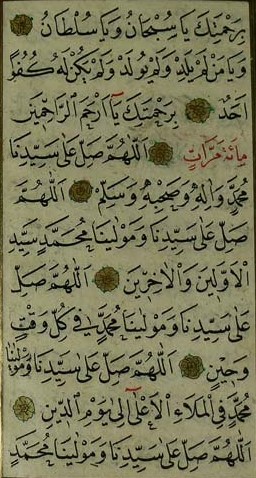 بِرَحْمَتِكَ يَا سُبْحَانُ وَيَا سُلْطَانُ
وَيَا مَنْ لَمْ يَلِدْ وَلَمْ يُولَدْ وَلَمْ يَكُنْ لَهُ كُفُوًا
اَحَدٌ بِرَحْمَتِكَ يَا اَرْحَمَ الرَّاحِمِينَ
مِائَةَ مَرَّاتٍ اَللّٰهُمَّ صَلِّ عَلٰى سَيِّدِنَا
مُحَمَّدٍ وَاٰلِهِ وَصَحْبِهِ وَسَلِّمْ اَللّٰهُمَّ
صَلِّ عَلٰى سَيِّدِنَا وَمَوْلٰينَا مُحَمَّدٍ سَيِّدِ
الْاَوَّلِينَ وَالْاٰخِرِينَ اَللّٰهُمَّ صَلِّ
عَلٰى سَيِّدِنَا وَمَوْلٰينَا مُحَمَّدٍ فِي كُلِّ وَقْتٍ
وَحِينٍ اَللّٰهُمَّ صَلِّ عَلٰى سَيِّدِنَا وَمَوْلٰينَا
مُحَمَّدٍ فِي الْمَلَاءِ الْاَعْلٰى اِلٰى يَوْمِ الدِّينِ
اَللّٰهُمَّ صَلِّ عَلٰى سَيِّدِنَا وَمَوْلٰينَا مُحَمَّدٍ